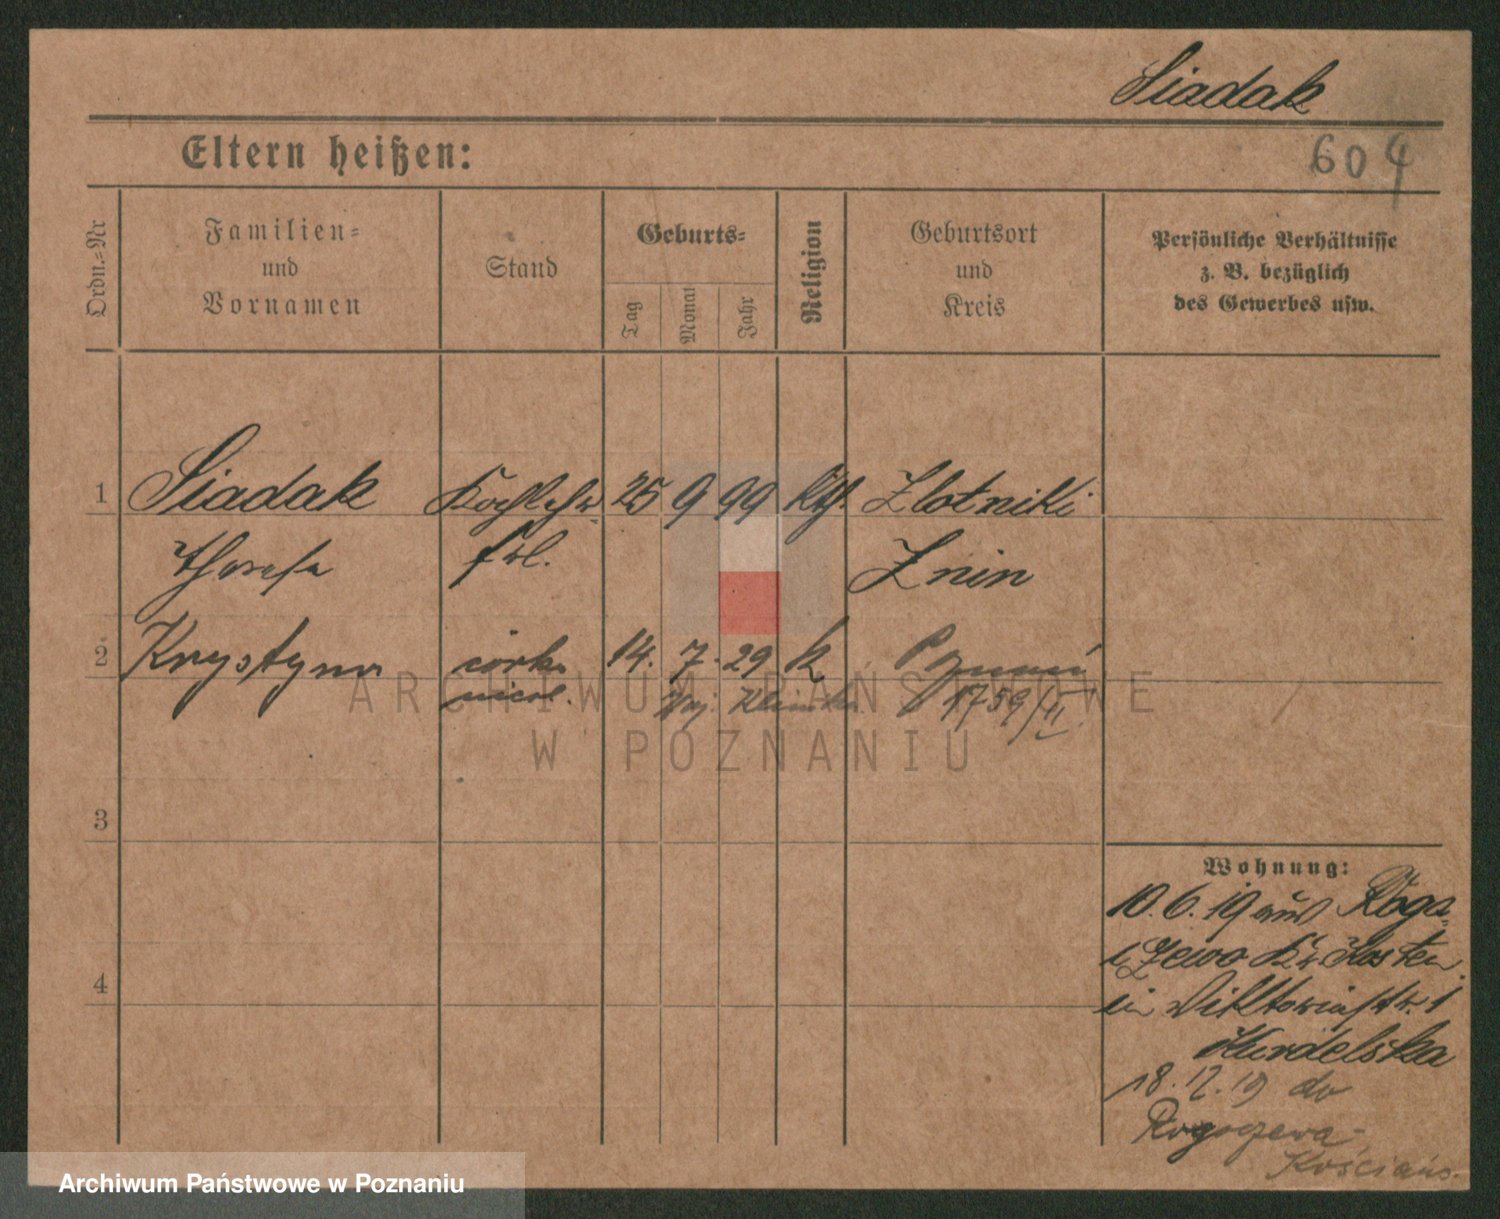 Siadak
Eltern heißen:
604
Ordn.=Nr
Familien=
und
Vornamen
Stand
Geburts=
Tag
Monat
Jahr
Religion
Geburtsort
und
Kreis
Persönliche Verhältnisse
z. B. bezüglich
des Gewerbes usw.
1 Siadak 25 9 99 Kth. Zlotniki
Theresa frl. Znin
2 Krystyna córka 14. 7. 29 K Poznań
nieśl. 1759/II
ARCHIWUM PAŃSTWOWE
W POZNANIU
3
4
Wohnung:
10.6.19 aus Roga-
czewo Kr Kosten
in Viktoriastr. 1
18.12.19 do
Rogaczewa
Kościańs.
Archiwum Państwowe w Poznaniu